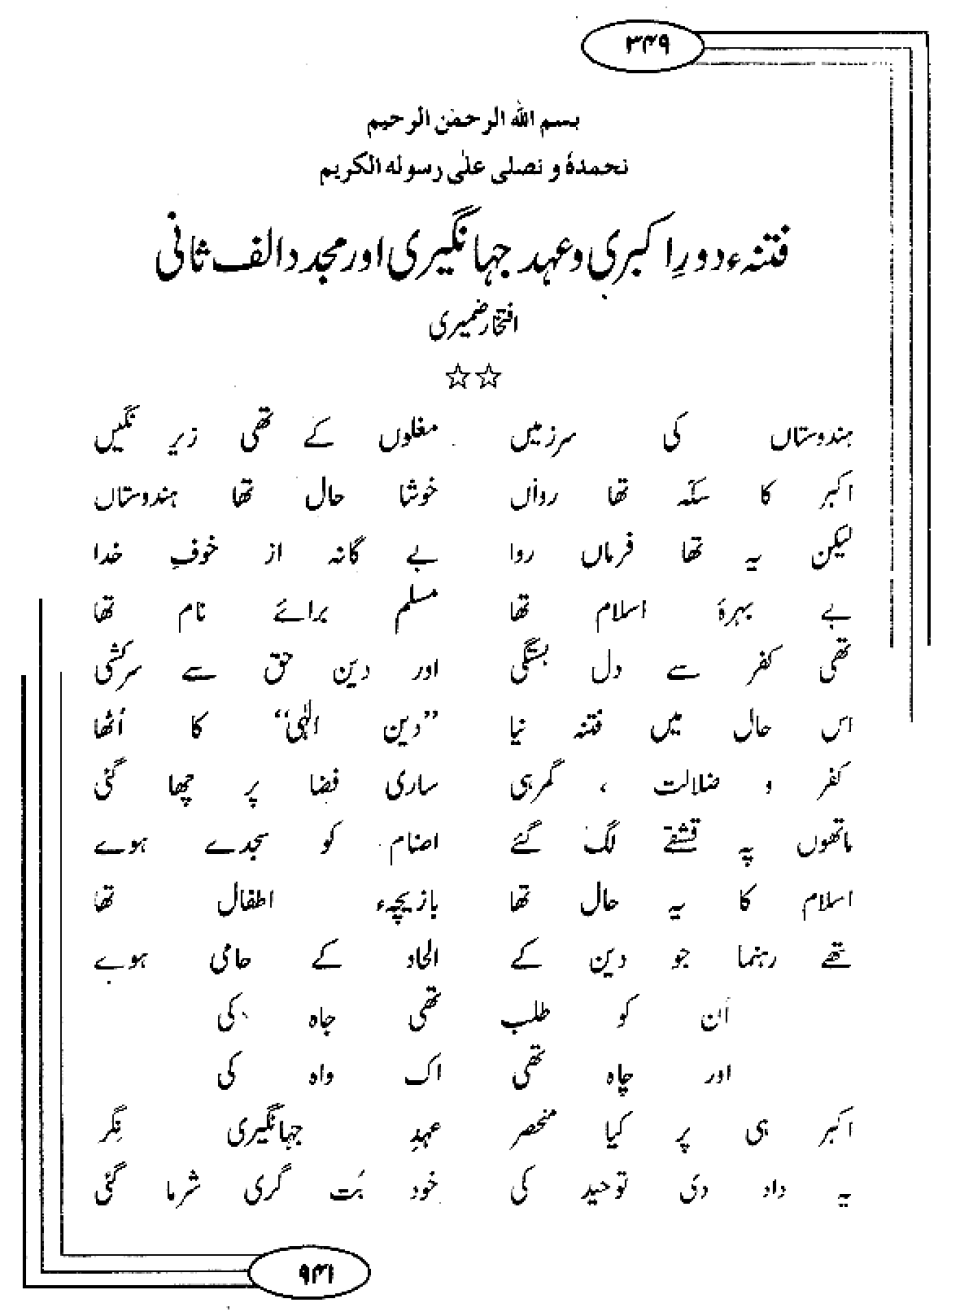 ۳۴۹
بسم اللہ الرحمٰن الرحیم
نحمدہٗ و نصلی علیٰ رسولہ الکریم
فتنہء دورِ اکبری و عہد جہانگیری اور مجدد الف ثانی
افتخار ضمیری
☆☆
ہندوستاں کی سرزمیں مغلوں کے تھی زیر نگیں
اکبر کا سکّہ تھا رواں خوشا حال تھا ہندوستاں
لیکن یہ تھا فرماں روا بے گانہ از خوفِ خدا
بے بہرۂ اسلام تھا مسلم برائے نام تھا
تھی کفر سے دل بستگی اور دین حق سے سرکشی
اس حال میں فتنہ نیا ”دین الٰہی“ کا اُٹھا
کفر و ضلالت ، گمرہی ساری فضا پر چھا گئی
ماتھوں پہ قشقے لگ گئے اصنام کو سجدے ہوے
اسلام کا یہ حال تھا بازیچہء اطفال تھا
تھے رہنما جو دین کے الحاد کے حامی ہوے
اُن کو طلب تھی جاہ کی
اور چاہ تھی اک واہ کی
اکبر ہی پر کیا منحصر عہدِ جہانگیری نِگر
یہ داد دی توحید کی خود بُت گری شرما گئی
۹۴۱